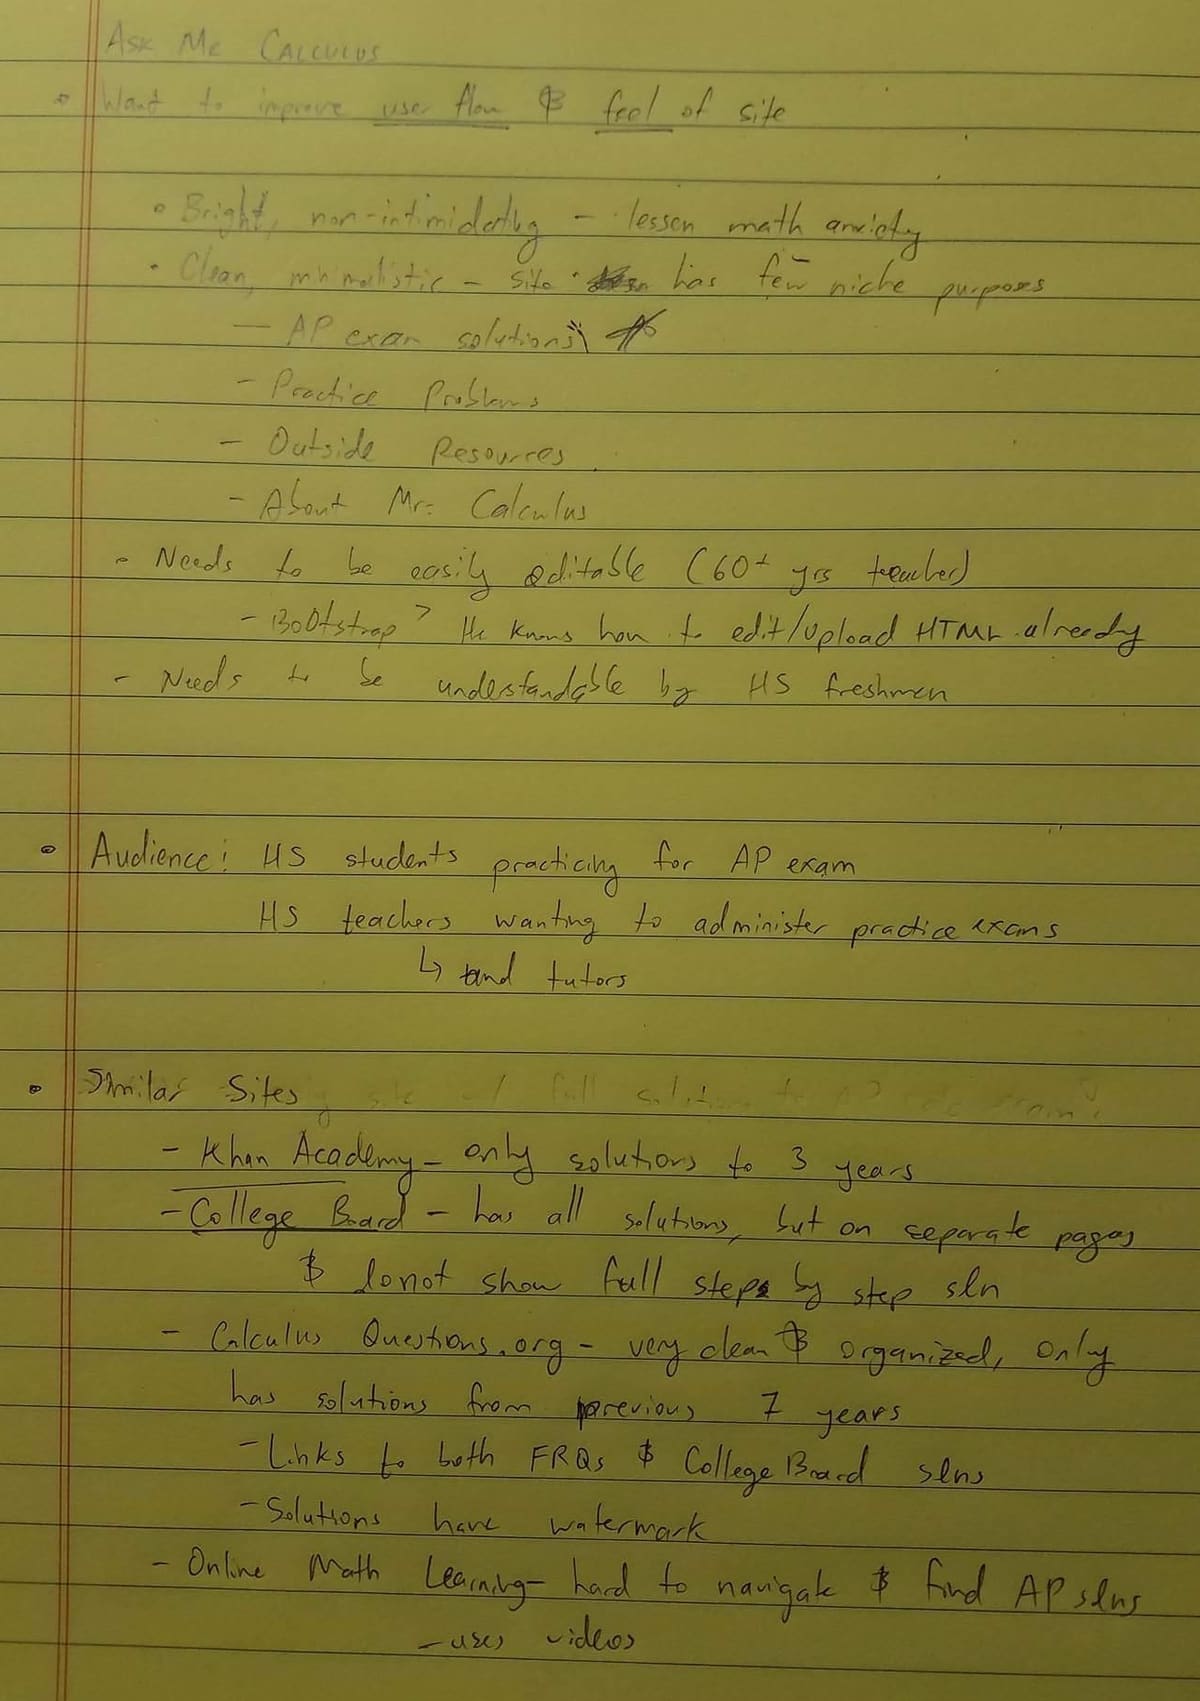 Ask Me CALCULUS
• Want to improve user flow & feel of site
• Bright, non-intimidating - lessen math anxiety
• Clean, minimalistic - site has few niche purposes
- AP exam solutions
- Practice Problems
- Outside Resources
- About Mr. Calculus
- Needs to be easily editable (60+ yrs teacher)
- Bootstrap? He knows how to edit/upload HTML already
- Needs to be understandable by HS freshmen
• Audience: HS students practicing for AP exam
HS teachers wanting to administer practice exams
↳ and tutors
• Similar Sites
- Khan Academy - only solutions to 3 years
- College Board - has all solutions, but on separate pages
& do not show full steps by step sln
- Calculus Questions.org - very clean & organized, only
has solutions from previous 7 years
- Links to both FRQs & College Board slns
- Solutions have watermark
- Online Math Learning - hard to navigate & find AP slns
- uses videos